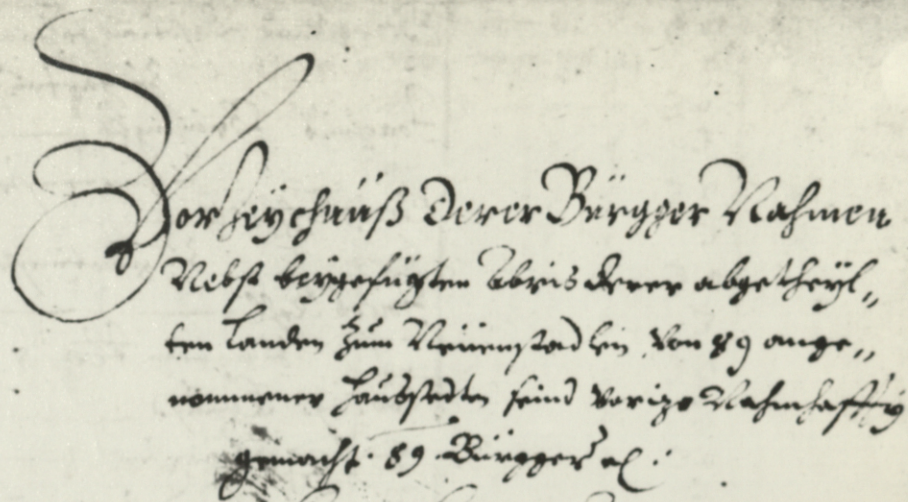 Vorzeychnüß derer Bürgger Nahmen
Nebst beygefügten Abris derer abgetheyl„
ten Landen zum Neüenstadlein von 89 ange„
nommener haubstedten seind vorige Nahmhafftig
gemacht. 89. Bürgger